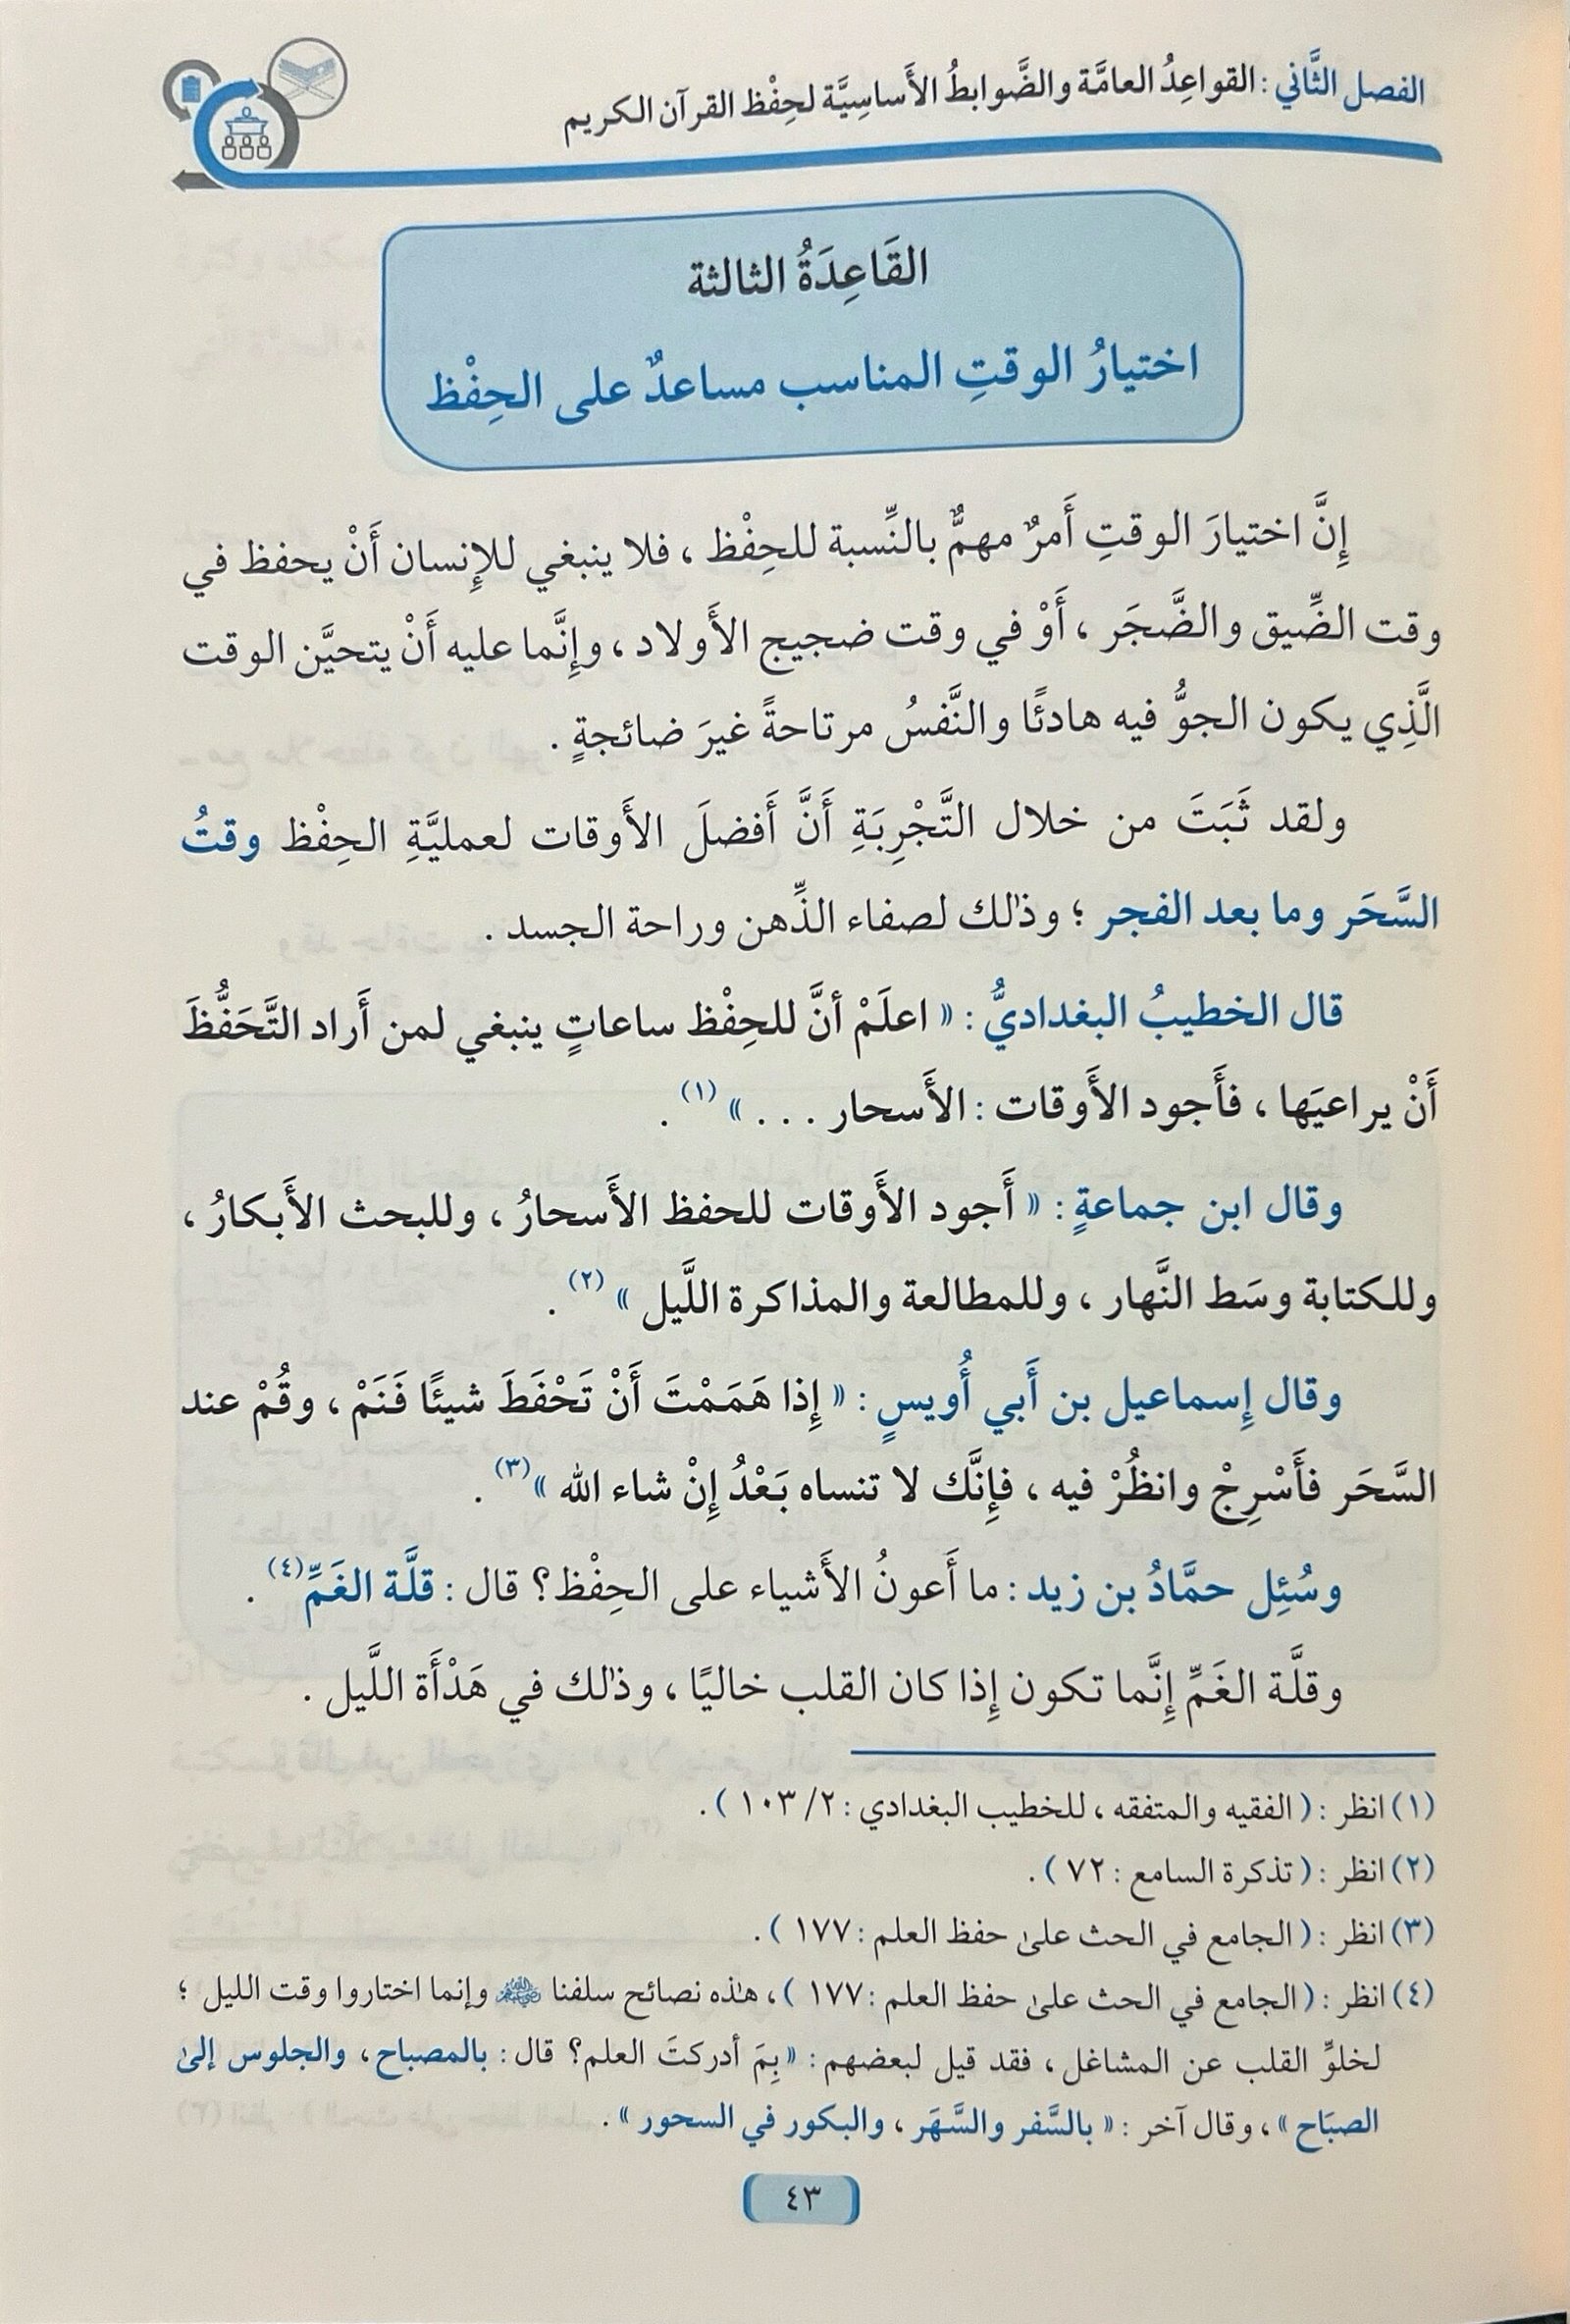 الفصل الثَّاني : القواعِدُ العامَّة والضَّوابطُ الأَساسِيَّة لحِفْظ القرآن الكريم
القَاعِدَةُ الثالثة
اختيارُ الوقتِ المناسب مساعدٌ على الحِفْظ
إِنَّ اختيارَ الوقتِ أَمرٌ مهمٌّ بالنِّسبة للحِفْظ ، فلا ينبغي للإِنسان أَنْ يحفظ في
وقت الضِّيق والضَّجَر ، أَوْ في وقت ضجيج الأَولاد ، وإِنَّما عليه أَنْ يتحيَّن الوقت
الَّذِي يكون الجوُّ فيه هادئًا والنَّفسُ مرتاحةً غيرَ ضائجةٍ .
ولقد ثَبَتَ من خلال التَّجْرِبَةِ أَنَّ أَفضلَ الأَوقات لعمليَّةِ الحِفْظ وقتُ
السَّحَر وما بعد الفجر ؛ وذٰلك لصفاء الذِّهن وراحة الجسد .
قال الخطيبُ البغداديُّ : « اعلَمْ أنَّ للحِفْظ ساعاتٍ ينبغي لمن أَراد التَّحَفُّظَ
أَنْ يراعيَها ، فأَجود الأَوقات : الأَسحار . . . » (١) .
وقال ابن جماعةٍ : « أَجود الأَوقات للحفظ الأَسحارُ ، وللبحث الأَبكارُ ،
وللكتابة وسَط النَّهار ، وللمطالعة والمذاكرة اللَّيل » (٢) .
وقال إِسماعيل بن أَبي أُويسٍ : « إِذا هَمَمْتَ أَنْ تَحْفَظَ شيئًا فَنَمْ ، وقُمْ عند
السَّحَر فأَسْرِجْ وانظُرْ فيه ، فإِنَّك لا تنساه بَعْدُ إِنْ شاء الله »(٣) .
وسُئِل حمَّادُ بن زيد : ما أَعونُ الأَشياء على الحِفْظ؟ قال : قلَّة الغَمِّ(٤) .
وقلَّة الغَمِّ إِنَّما تكون إِذا كان القلب خاليًا ، وذٰلك في هَدْأَة اللَّيل .
(١) انظر : ( الفقيه والمتفقه ، للخطيب البغدادي : ٢/ ١٠٣ ) .
(٢) انظر : ( تذكرة السامع : ٧٢ ) .
(٣) انظر : ( الجامع في الحث علىٰ حفظ العلم : ١٧٧ ) .
(٤) انظر : ( الجامع في الحث علىٰ حفظ العلم : ١٧٧ ) ، هٰذه نصائح سلفنا وإنما اختاروا وقت الليل ؛
لخلوِّ القلب عن المشاغل ، فقد قيل لبعضهم : « بِمَ أدركتَ العلم؟ قال : بالمصباح ، والجلوس إلىٰ
الصبَاح » ، وقال آخر : « بالسَّفر والسَّهَر ، والبكور في السحور » .
٤٣